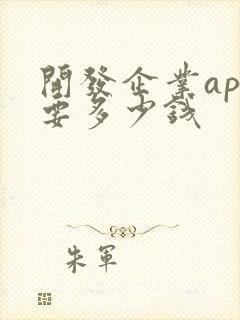 開發企業ap
要多少錢
朱軍